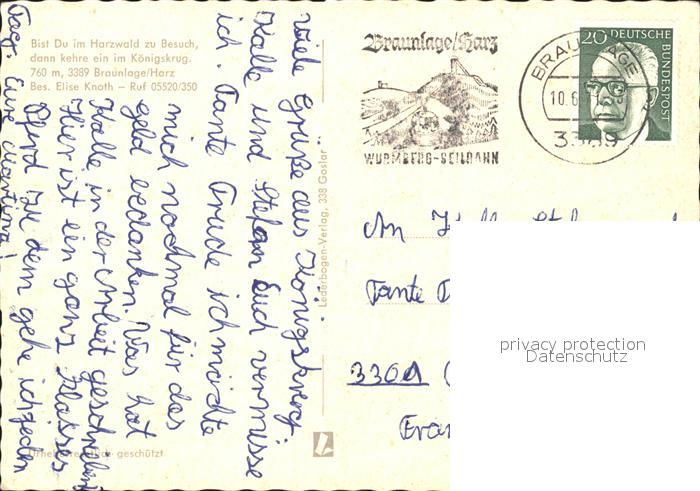 Bist Du im Harzwald zu Besuch,
dann kehre ein im Königskrug.
760 m, 3389 Braunlage/Harz
Bes. Elise Knoth – Ruf 05520/350
Viele Grüße aus Königskrug.
Kalle und Stefan Euch vermisse
ich. Tante Trude ich möchte
mich nochmal für das
geld bedanken. Was hat
Kalle in der Arbeit geschrieben
Hier ist ein ganz klasses
Pferd zu dem gehe ich jeden
Tag. Eure Martina!
Urheberrechtlich geschützt
Lederbogen-Verlag, 338 Goslar
Braunlage/Harz
WURMBERG-SEILBAHN
BRAUNLAGE
10.6
3389
20 DEUTSCHE
BUNDESPOST
An
Tante
3301
privacy protection
Datenschutz